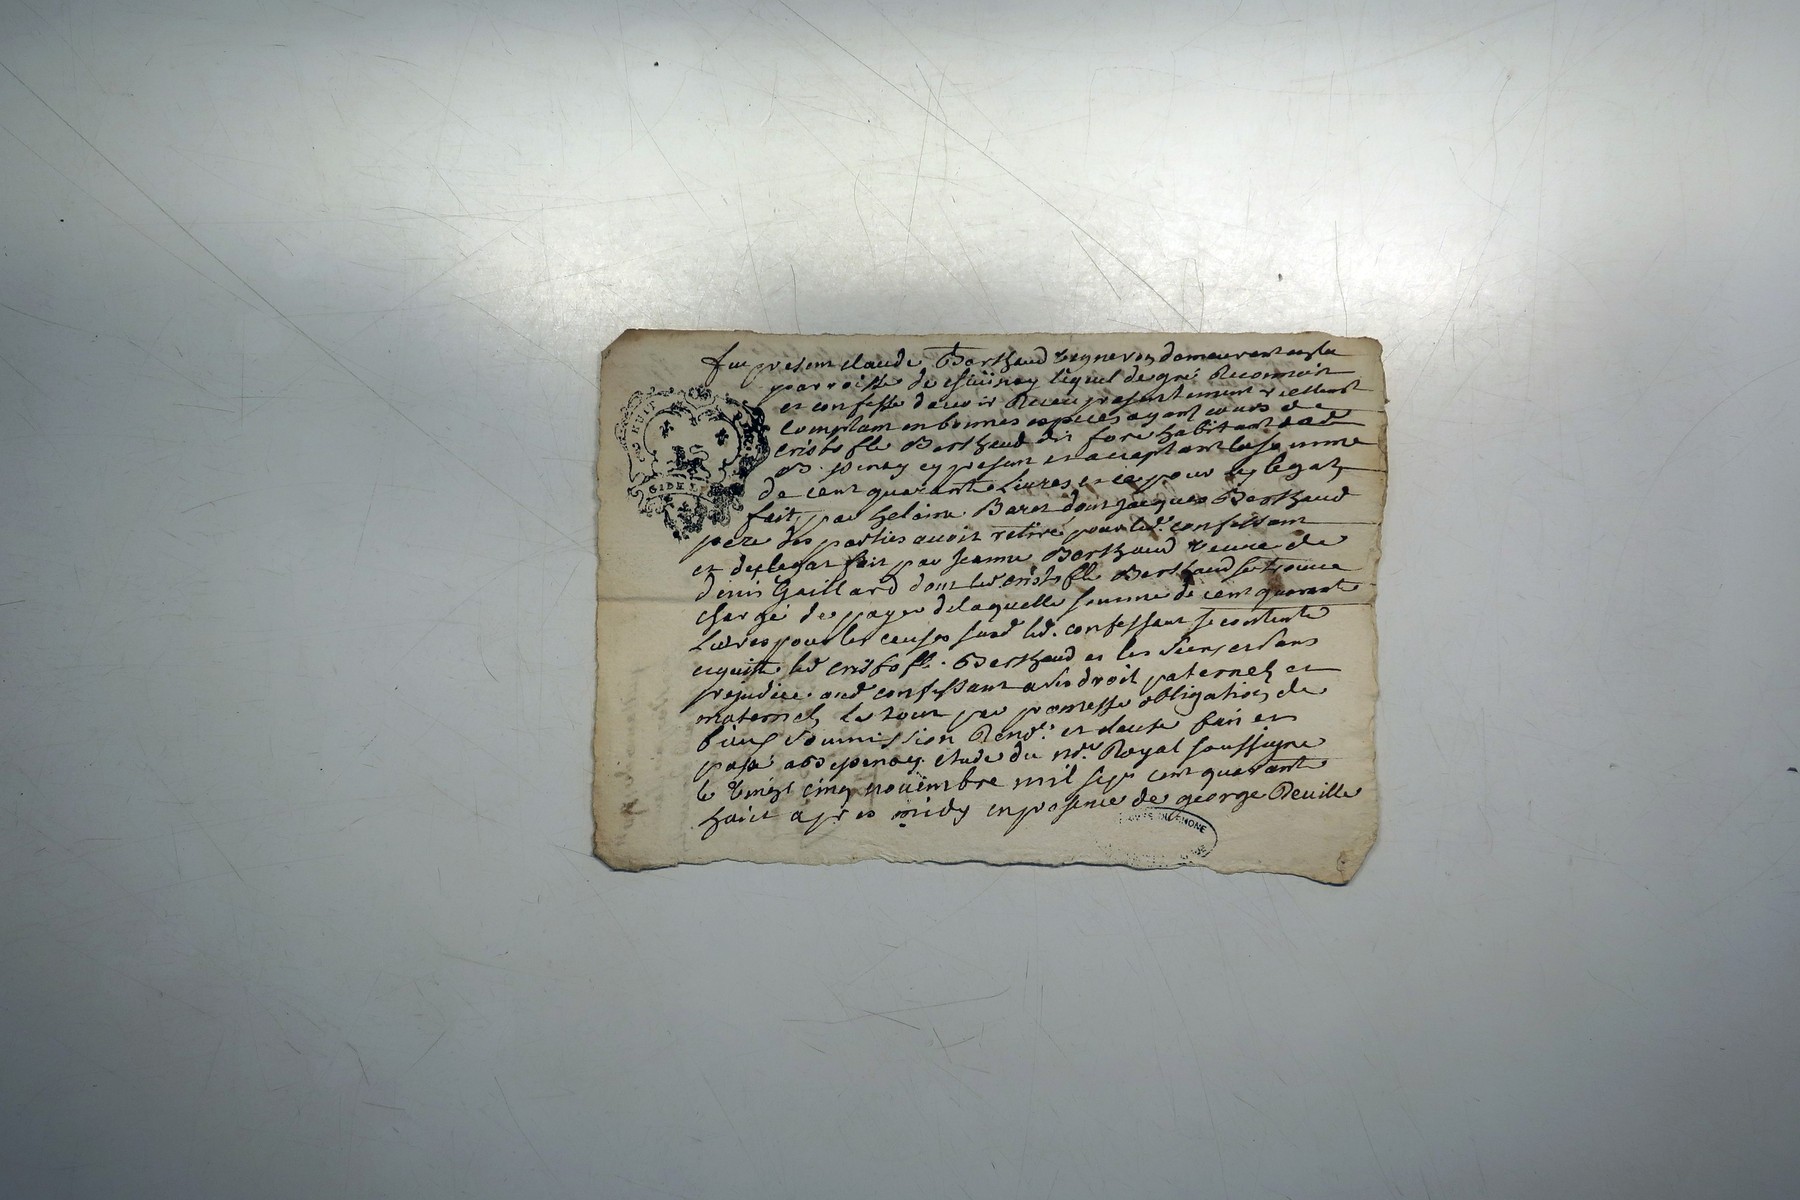 fut present claude Berthaud vigneron demeurant en la
parroisse de lequel de gré Reconnoit
et confesse devoir Receu presentement reellement
comptant en bonnes especes ayant cours de
cristofle Berthaud dit habitant
en present et acceptant la somme
de cent quarante Livres et ce pour legat
fait par Baret dont jacques Berthaud
pere des parties avoit retiré pour led. confessant
et de legat fait par jeanne Berthaud veuve de
denis Gaillard dont led cristofle Berthaud se trouve
chargé de payer de laquelle somme de cent quarante
Livres pour les causes susd led. confessant se contente
et quitte led cristofle Berthaud et les siens et sans
prejudice aud confessant a ses droit paternel et
maternel le tout par promesse obligation de
biens soumission Renon. et clause fait et
passé étude du no.re Royal soussigne
le vingt cinq novembre mil sept cent quarante
huict apres midy en presence de george Reville